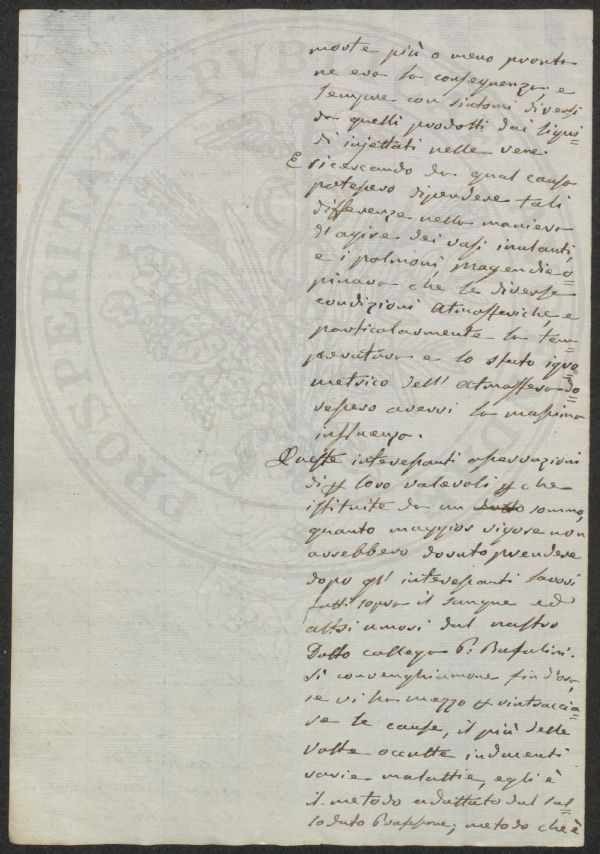 morte più o meno pronta
ne era la conseguenza, e
sempre con sintomi diversi
da quelli prodotti dai liqui=
di injettati nelle vene.
E ricercando da qual causa
potessero dipendere tali
differenze nella maniera
d'agire dei vasi inalanti,
e i polmoni, Magendie o=
pinava che le diverse
condizioni atmosferiche, e
particolarmente la tem=
peratura e lo stato igro
metrico dell'atmosfera do=
vessero avervi la massima
influenza.
Queste interessanti osservazioni
di loro valevoli che
istituite da un dotto sommo,
quanto maggior vigore non
avrebbero dovuto prendere
dopo gl'interessanti lavori
fatti sopra il sangue ed
altri umori dal nostro
Dotto collega P. Bufalini.
Si convenghiamone fin d'ora,
se vi ha mezzo rintraccia=
re le cause, il più delle
volte occulte inducenti
varie malattie, egli è
il metodo adottato dal sul
lodato Professore; metodo che è
PROSPERITATI PVBLICAE